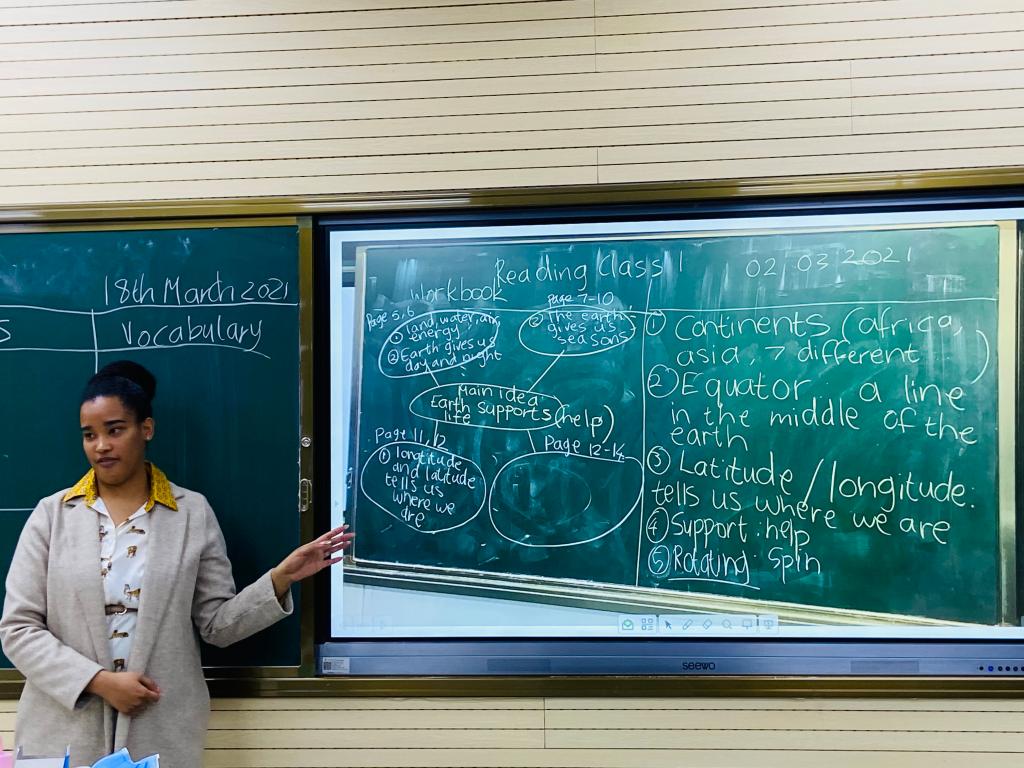 18th March 2021
S
Vocabulary
Reading Class 1
02 03 2021
Workbook
Page 5, 6
① land, water, air,
energy
② Earth gives us
day and night
page 7-10
② The earth
gives us
seasons
Main idea
Earth supports (help)
life
Page 11, 12
① longtitude
and latitude
tells us
where we
are
Page 12-14
① Continents (africa,
asia, 7 different)
② Equator : a line
in the middle of the
earth
③ Latitude / longitude:
tells us where we are
④ Support : help
⑤ Rotating : Spin
seewo